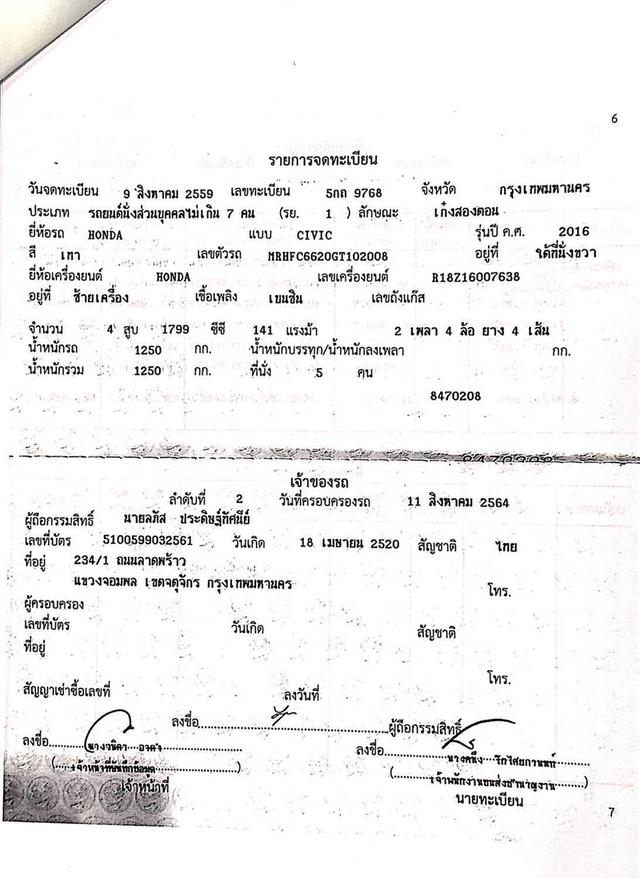 6
รายการจดทะเบียน
วันจดทะเบียน 9 สิงหาคม 2559 เลขทะเบียน 5กก 9768 จังหวัด กรุงเทพมหานคร
ประเภท รถยนต์นั่งส่วนบุคคลไม่เกิน 7 คน (รย. 1 ) ลักษณะ เก๋งสองตอน
ยี่ห้อรถ HONDA แบบ CIVIC รุ่นปี ค.ศ. 2016
สี เทา เลขตัวรถ MRHFC6620GT102008 อยู่ที่ ใต้ที่นั่งขวา
ยี่ห้อเครื่องยนต์ HONDA เลขเครื่องยนต์ R18Z16007638
อยู่ที่ ซ้ายเครื่อง เชื้อเพลิง เบนซิน เลขถังแก๊ส
จำนวน 4 สูบ 1799 ซีซี 141 แรงม้า 2 เพลา 4 ล้อ ยาง 4 เส้น
น้ำหนักรถ 1250 กก. น้ำหนักบรรทุก/น้ำหนักลงเพลา กก.
น้ำหนักรวม 1250 กก. ที่นั่ง 5 คน
8470208
เจ้าของรถ
ลำดับที่ 2 วันที่ครอบครองรถ 11 สิงหาคม 2564
ผู้ถือกรรมสิทธิ์ นายลภัส ประดิษฐ์ทัศนีย์
เลขที่บัตร 5100599032561 วันเกิด 18 เมษายน 2520 สัญชาติ ไทย
ที่อยู่ 234/1 ถนนลาดพร้าว
แขวงจอมพล เขตจตุจักร กรุงเทพมหานคร
โทร.
ผู้ครอบครอง
เลขที่บัตร วันเกิด สัญชาติ
ที่อยู่
โทร.
สัญญาเช่าซื้อเลขที่ ลงวันที่
ลงชื่อ ผู้ถือกรรมสิทธิ์
ลงชื่อ ลงชื่อ
(เจ้าหน้าที่บันทึกข้อมูล) (เจ้าพนักงานขนส่งชำนาญงาน)
เจ้าหน้าที่ นายทะเบียน
7